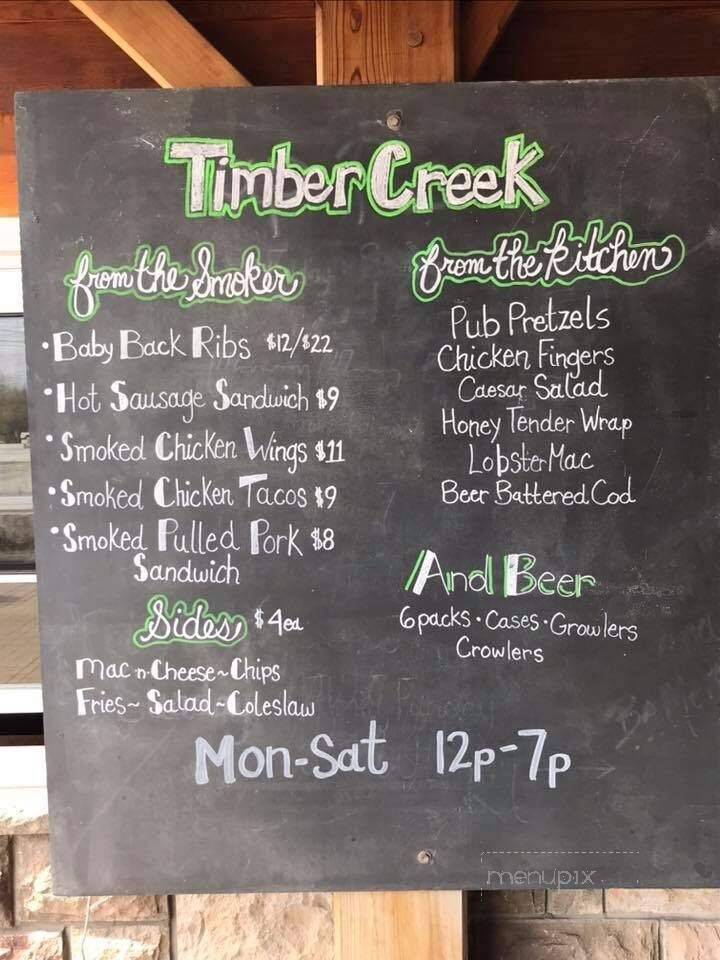 Timber Creek
from the Smoker
• Baby Back Ribs $12/$22
• Hot Sausage Sandwich $9
• Smoked Chicken Wings $11
• Smoked Chicken Tacos $9
• Smoked Pulled Pork $8
Sandwich
Sides $4ea
Mac-n-Cheese~Chips
Fries~ Salad~Coleslaw
from the kitchen
Pub Pretzels
Chicken Fingers
Caesar Salad
Honey Tender Wrap
Lobster Mac
Beer Battered Cod
And Beer
6packs • Cases • Growlers
Crowlers
Mon-Sat 12p-7p
menupix